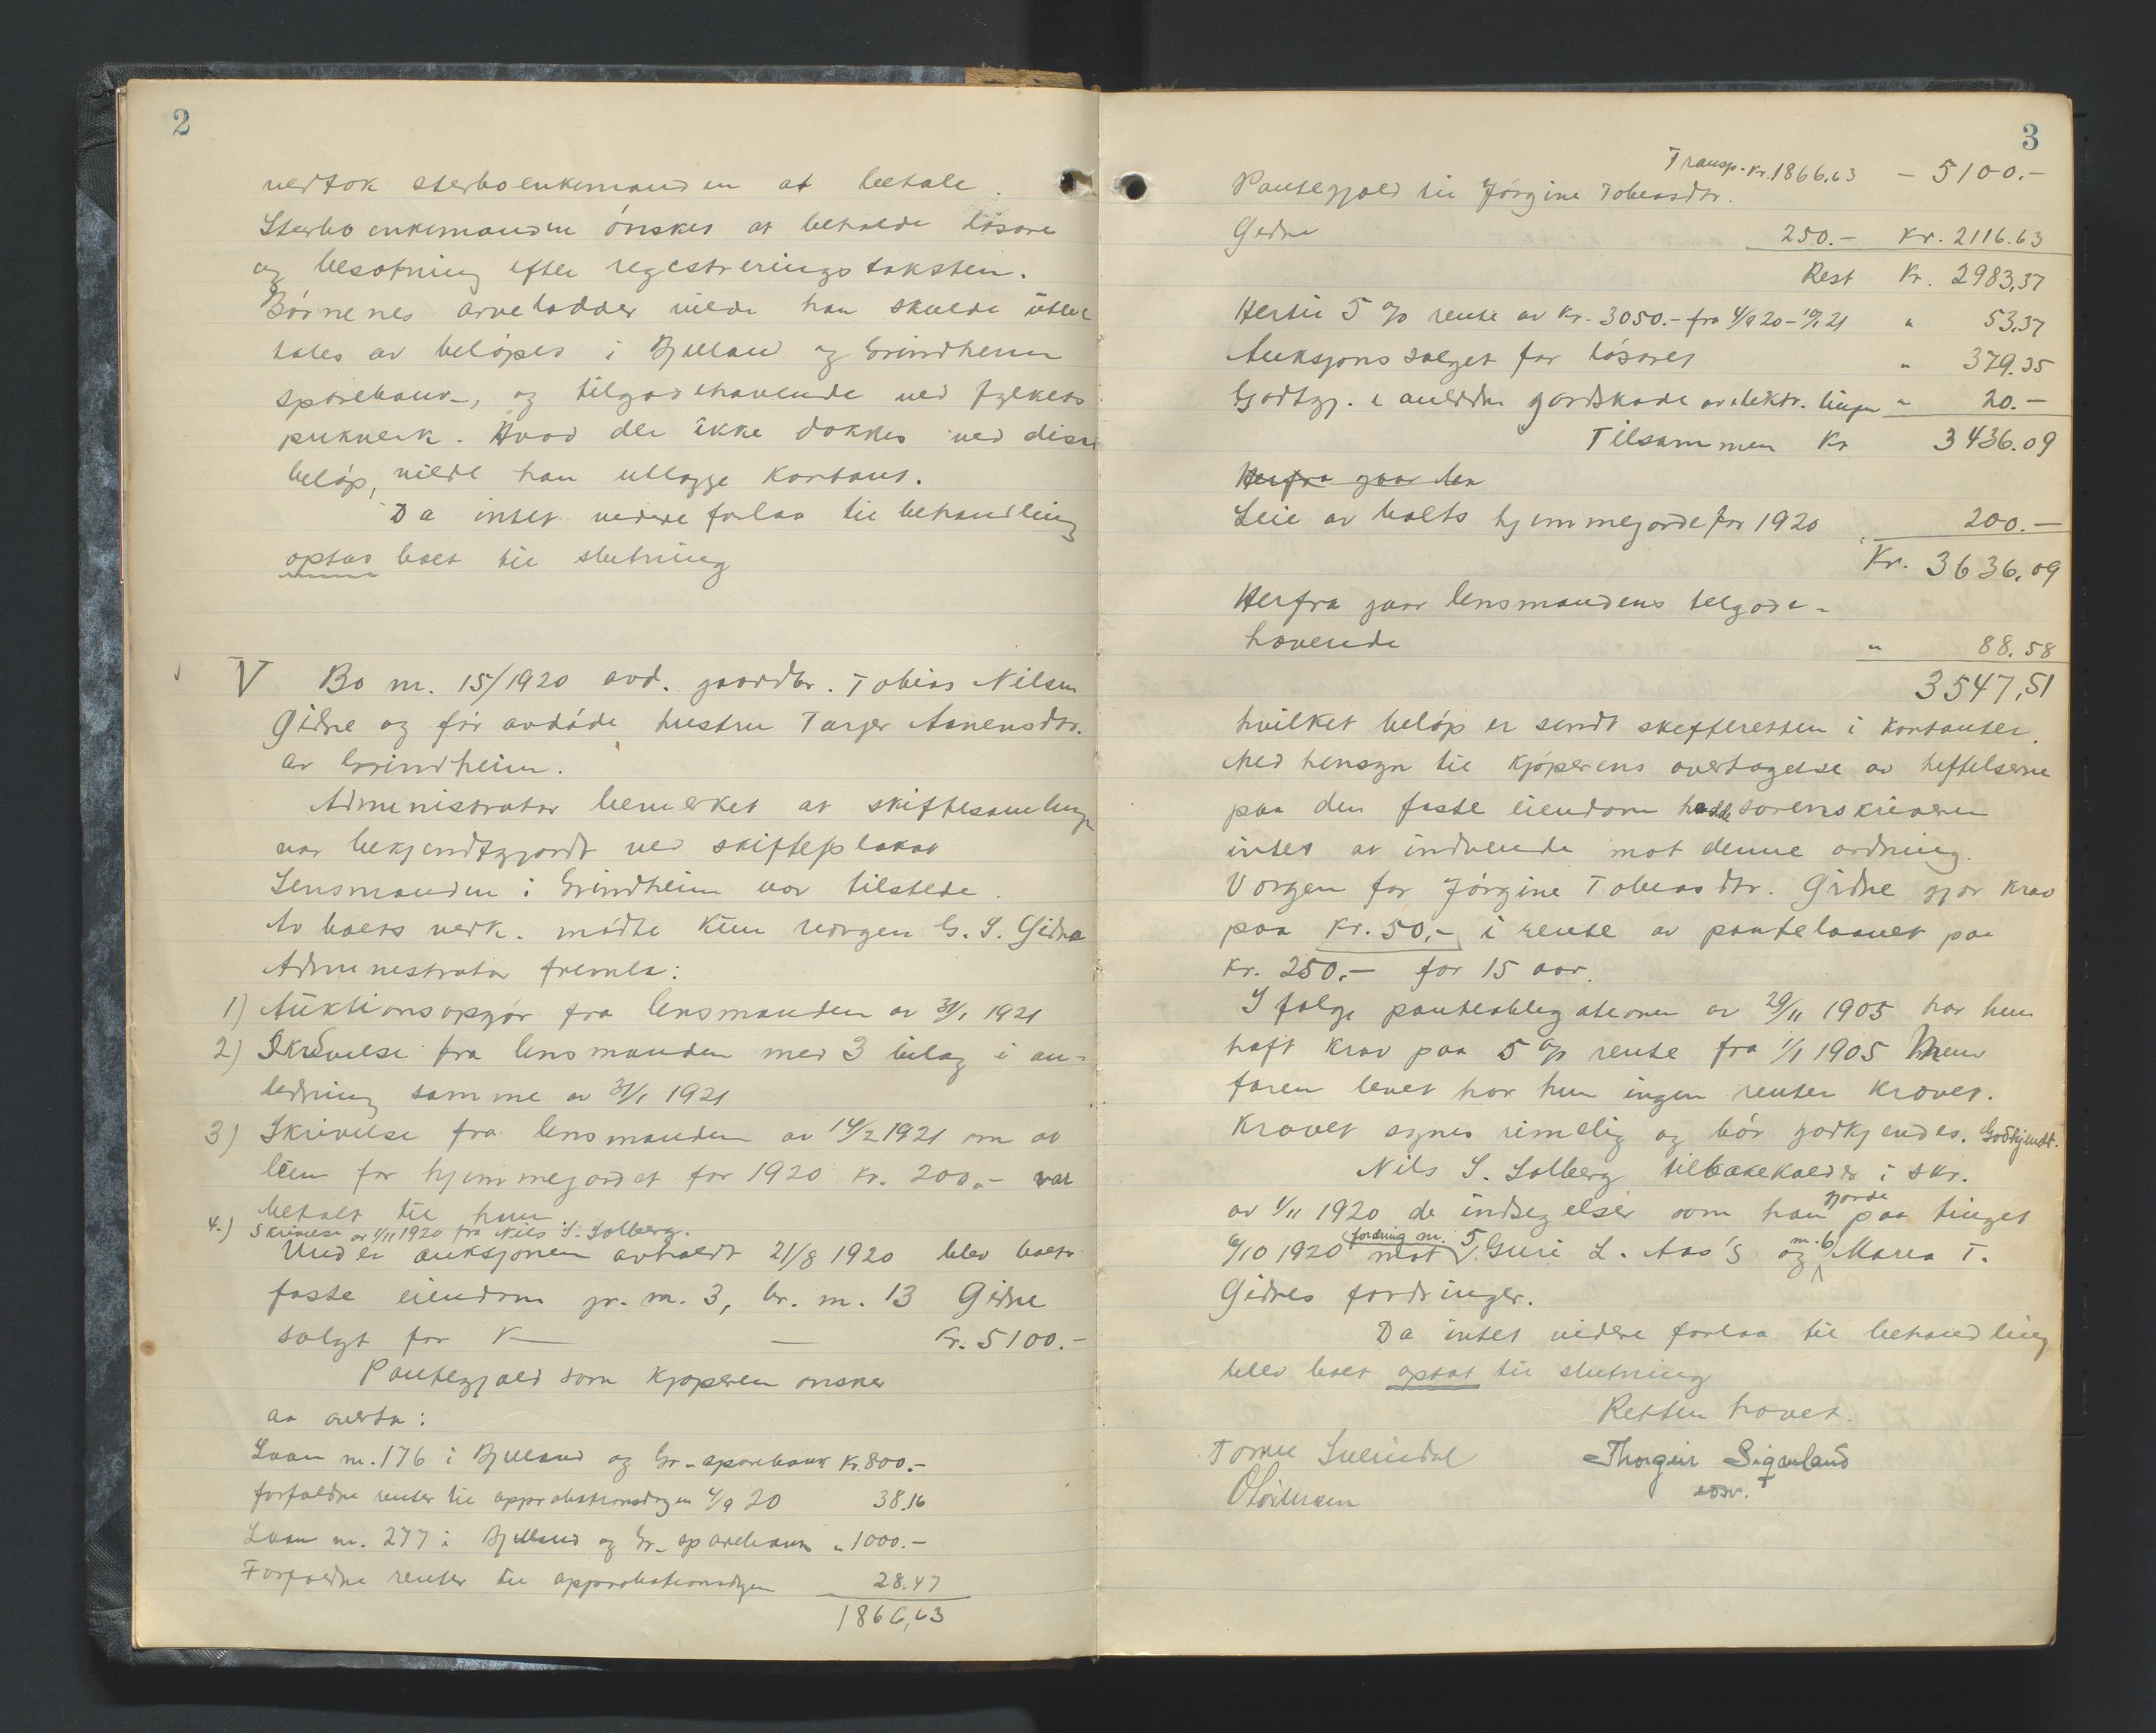 2
vedtok sterboenkemanden at betale.
Sterboenkemanden ønsket at beholde løsøre
og besætning efter registreringstaksten.
Børnenes arvelodder vilde han skulde utbe
tales av beløpet i Bjelland og Grindheim
sparebank, og tilgodehavende ved fylkets
pukverk. Hvad der ikke dækkes ved disse
beløp, vilde han utlægge kontant.
Da intet videre forlaa til behandling
optas boet til slutning
V Bo nr. 15/1920 avd. gaardbr. Tobias Nilsen
Gidne og før avdøde hustru Tarjer Aanensdtr.
av Grindheim.
Administrator bemerket at skiftesamlingen
var bekjendtgjordt ved skifteplakat
Lensmanden i Grindheim var tilstede.
Av boets vedk. mødte kun vergen G. S. Gidne
Administrator fremla:
1) Auktionsopgjør fra lensmanden av 31/1 1921
2) Skrivelse fra lensmanden med 3 bilag i an-
ledning samme av 31/1 1921
3) Skrivelse fra lensmanden av 14/2 1921 om at
leien for hjemmejordet for 1920 kr. 200.- var
betalt til ham.
4.) Skrivelse av 1/11 1920 fra Nils S. Solberg.
Under auksjonen avholdt 21/8 1920 blev boets
faste eiendom gr. nr. 3, br. nr. 13 Gidne
solgt for Kr. 5100.-
Pantegjæld som kjøperen ønsker
aa overta:
Laan nr. 176 i Bjelland og Gr. sparebank Kr. 800.-
forfaldne renter til approbationsdagen 4/9 20 38.16
Laan nr. 277 i Bjelland og Gr. sparebank " 1000.-
Forfaldne renter til approbationsdagen 28.47
1866,63
3
Transp. kr. 1866.63 - 5100.-
Pantegjæld til Jørgine Tobiasdtr.
Gidne 250.- Kr. 2116.63
Rest Kr. 2983,37
Hertil 5 % rente av Kr. 3050.- fra 4/9 20 - 10/1 21 " 53,37
Auksjonssalget for løsøret " 379.35
Godtgj. i anledn. jordskade av elektr. linjen " 20.-
Tilsammen Kr 3436.09
Herfra gaar den
Leie av boets hjemmejorde for 1920 200.-
Kr. 3636,09
Herfra gaar lensmandens tilgode-
havende " 88,58
3547,51
hvilket beløp er sendt skifteretten i kontanter.
Med hensyn til kjøperens overtagelse av heftelserne
paa den faste eiendom hadde sorenskriveren
intet at indvende mot denne ordning.
Vergen for Jørgine Tobiasdtr. Gidne gjør krav
paa kr. 50,- i rente av pantelaanet paa
kr. 250.- for 15 aar.
I følge panteobligationen av 29/11 1905 har hun
haft krav paa 5 % rente fra 1/1 1905 Men
faren levet har hun ingen renter krævet.
Kravet synes rimelig og bør godkjendes. Godkjendt.
Nils S. Solberg tilbakekalder i skr.
av 1/11 1920 de indsigelser som han gjorde paa tinget
6/10 1920 mot fordring nr. 5 Guri L. Aas's og nr. 6 Maria T.
Gidnes fordringer.
Da intet videre forlaa til behandling
blev boet optat til slutning
Retten hævet.
Tomee Sveindal Thorgeir Sigenland
edsv.